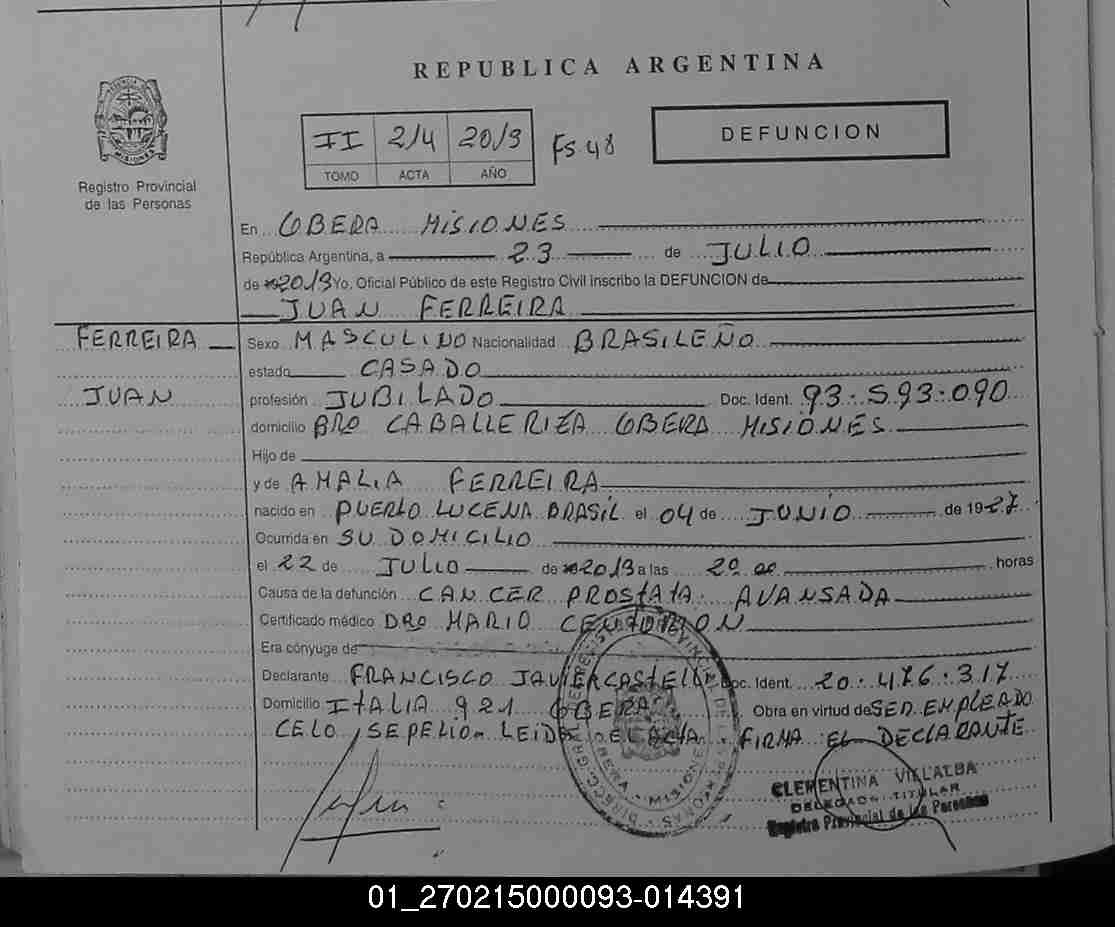 REPUBLICA ARGENTINA
II 214 2013 Fs. 48
TOMO ACTA AÑO
DEFUNCION
MISIONES
Registro Provincial
de las Personas
En OBERA MISIONES
República Argentina, a 23 de JULIO
de 2013 Yo, Oficial Público de este Registro Civil inscribo la DEFUNCION de
JUAN FERREIRA
FERREIRA
JUAN
Sexo MASCULINO Nacionalidad BRASILEÑO
estado CASADO
profesión JUBILADO Doc. Ident. 93.593.090
domicilio BRO CABALLERIZA OBERA MISIONES
Hijo de
y de AMALIA FERREIRA
nacido en PUERTO LUCENA BRASIL el 04 de JUNIO de 1927
Ocurrida en SU DOMICILIO
el 22 de JULIO de 2013 a las 20.00 horas
Causa de la defunción CANCER PROSTATA AVANSADA
Certificado médico DRO MARIO CENTURION
Era cónyuge de
Declarante FRANCISCO JAVIER Doc. Ident. 20.476.317
Domicilio ITALIA 921 OBERA Obra en virtud de SER EMPLEADO
CELO SEPELIO LEIDA EL ACTA FIRMA EL DECLARANTE
CLEMENTINA VILLALBA
DELEGADA TITULAR
Registro Provincial de las Personas
01_270215000093-014391